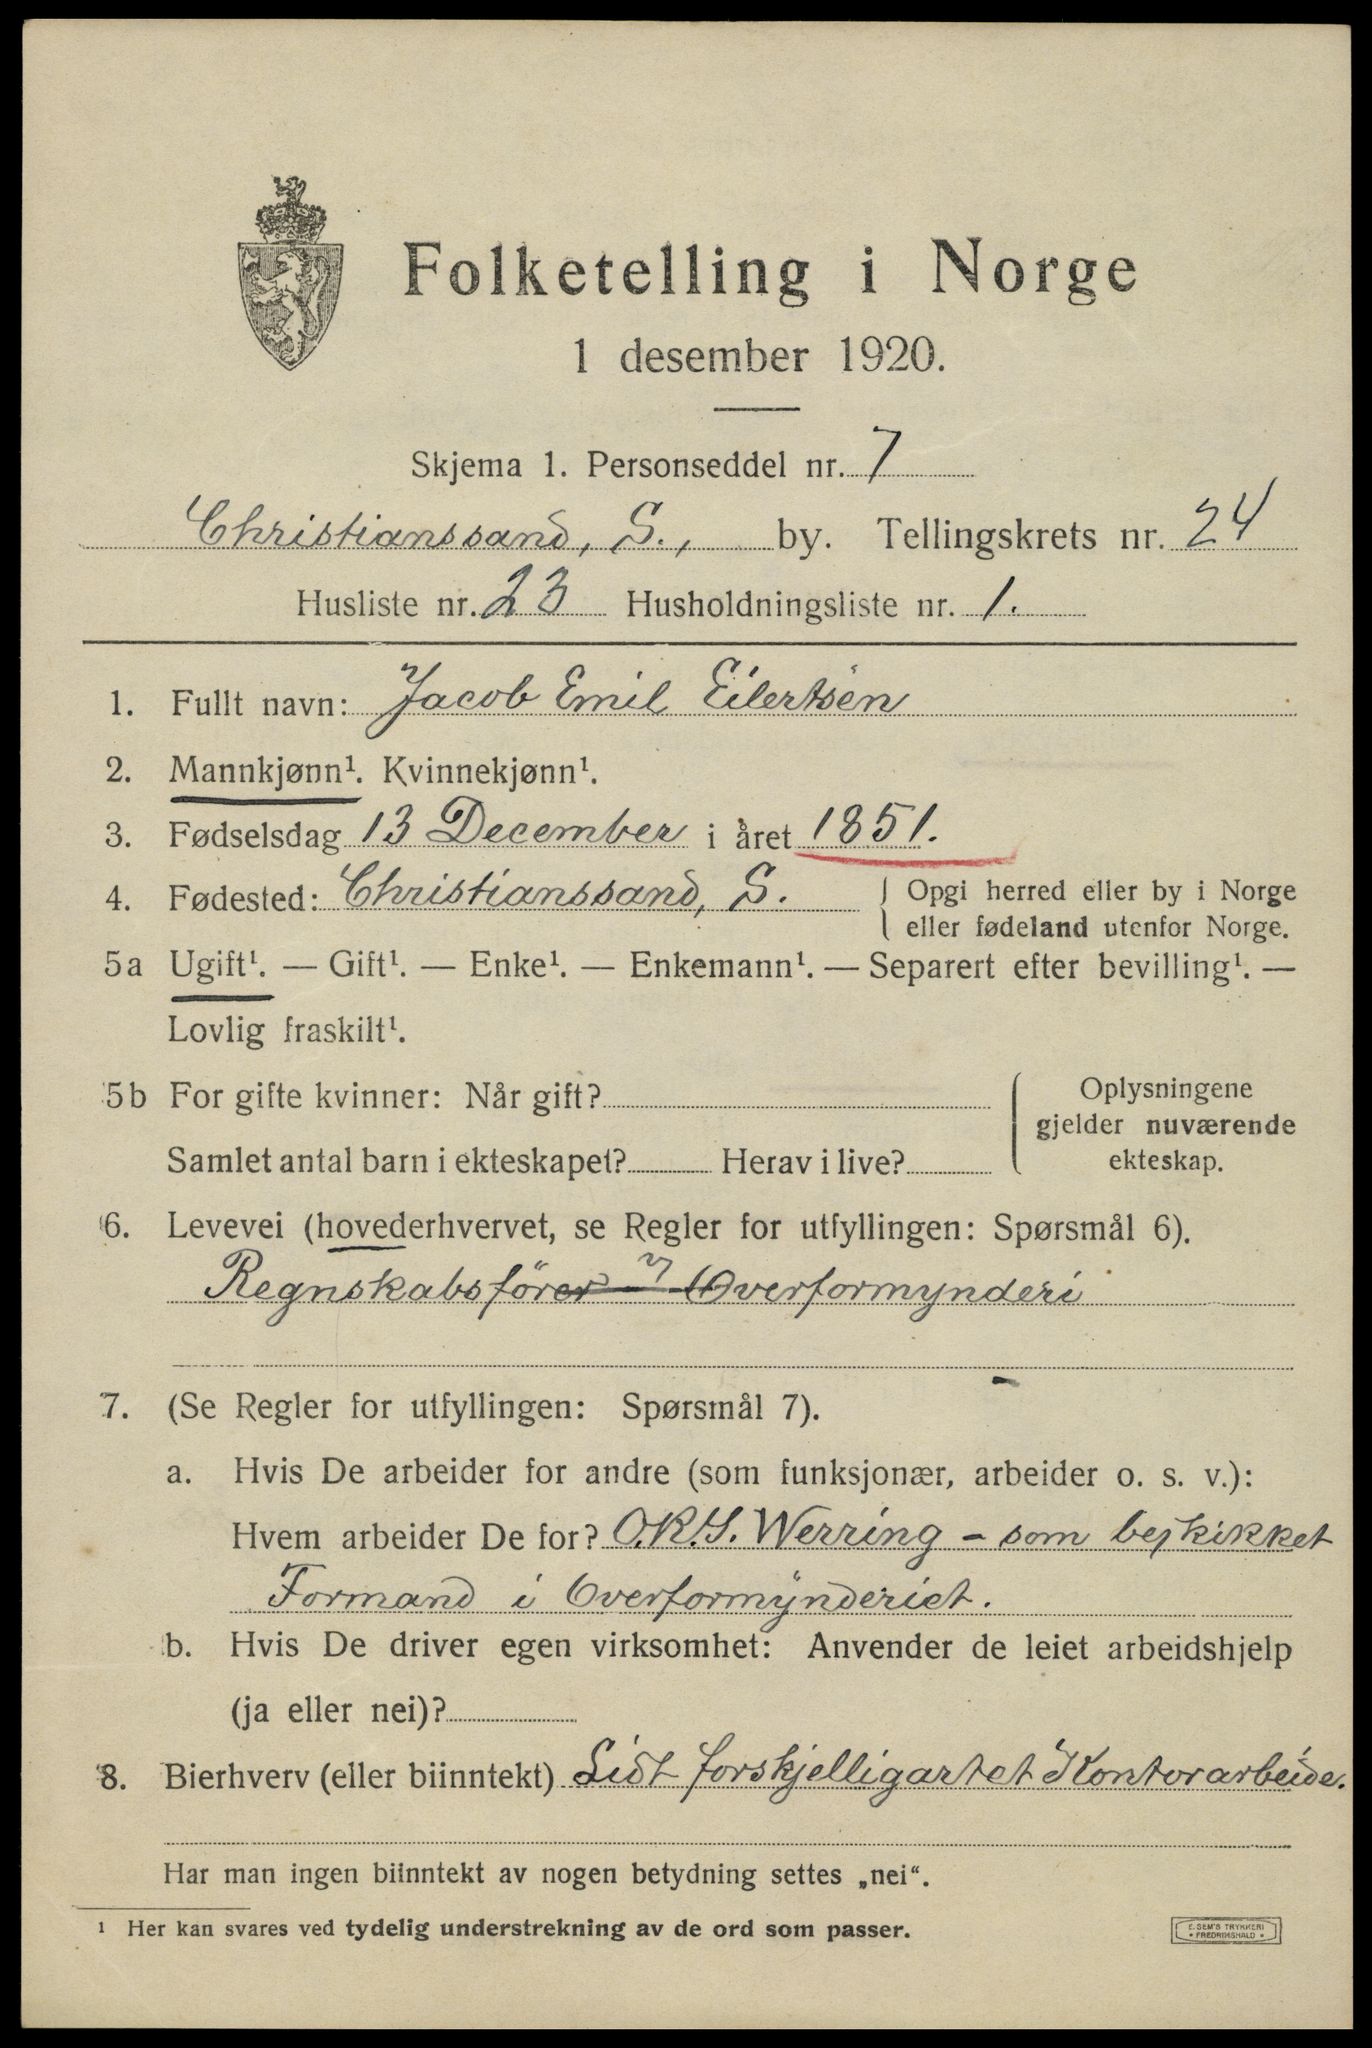 Folketelling i Norge
1 desember 1920.
Skjema 1. Personseddel nr. 7
Christianssand, S., by. Tellingskrets nr. 24
Husliste nr. 23 Husholdningsliste nr. 1.
1. Fullt navn: Jacob Emil Eilertsen
2. Mannkjønn¹. Kvinnekjønn¹.
3. Fødselsdag 13 December i året 1851.
4. Fødested: Christianssand, S. { Opgi herred eller by i Norge
eller fødeland utenfor Norge.
5a Ugift¹. — Gift¹. — Enke¹. — Enkemann¹. — Separert efter bevilling¹. —
Lovlig fraskilt¹.
5b For gifte kvinner: Når gift? Oplysningene
gjelder nuværende
Samlet antal barn i ekteskapet? Herav i live? ekteskap.
6. Levevei (hovederhvervet, se Regler for utfyllingen: Spørsmål 6).
Regnskabsfører Overformynderi
7. (Se Regler for utfyllingen: Spørsmål 7).
a. Hvis De arbeider for andre (som funksjonær, arbeider o. s. v.):
Hvem arbeider De for? O.K.S. Werring – som beskikket
Formand i Overformynderiet.
b. Hvis De driver egen virksomhet: Anvender de leiet arbeidshjelp
(ja eller nei)?
8. Bierhverv (eller biinntekt) Lidt forskjelligartet Kontorarbeide.
Har man ingen biinntekt av nogen betydning settes „nei“.
¹ Her kan svares ved tydelig understrekning av de ord som passer.
E. SEM'S TRYKKERI
• FREDRIKSHALD •